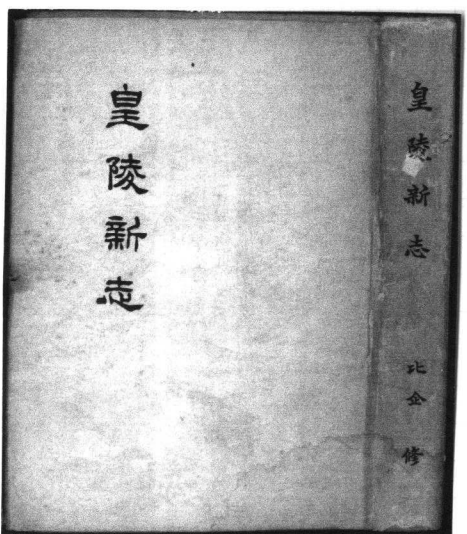 皇陵新志
皇陵新志 比企 修